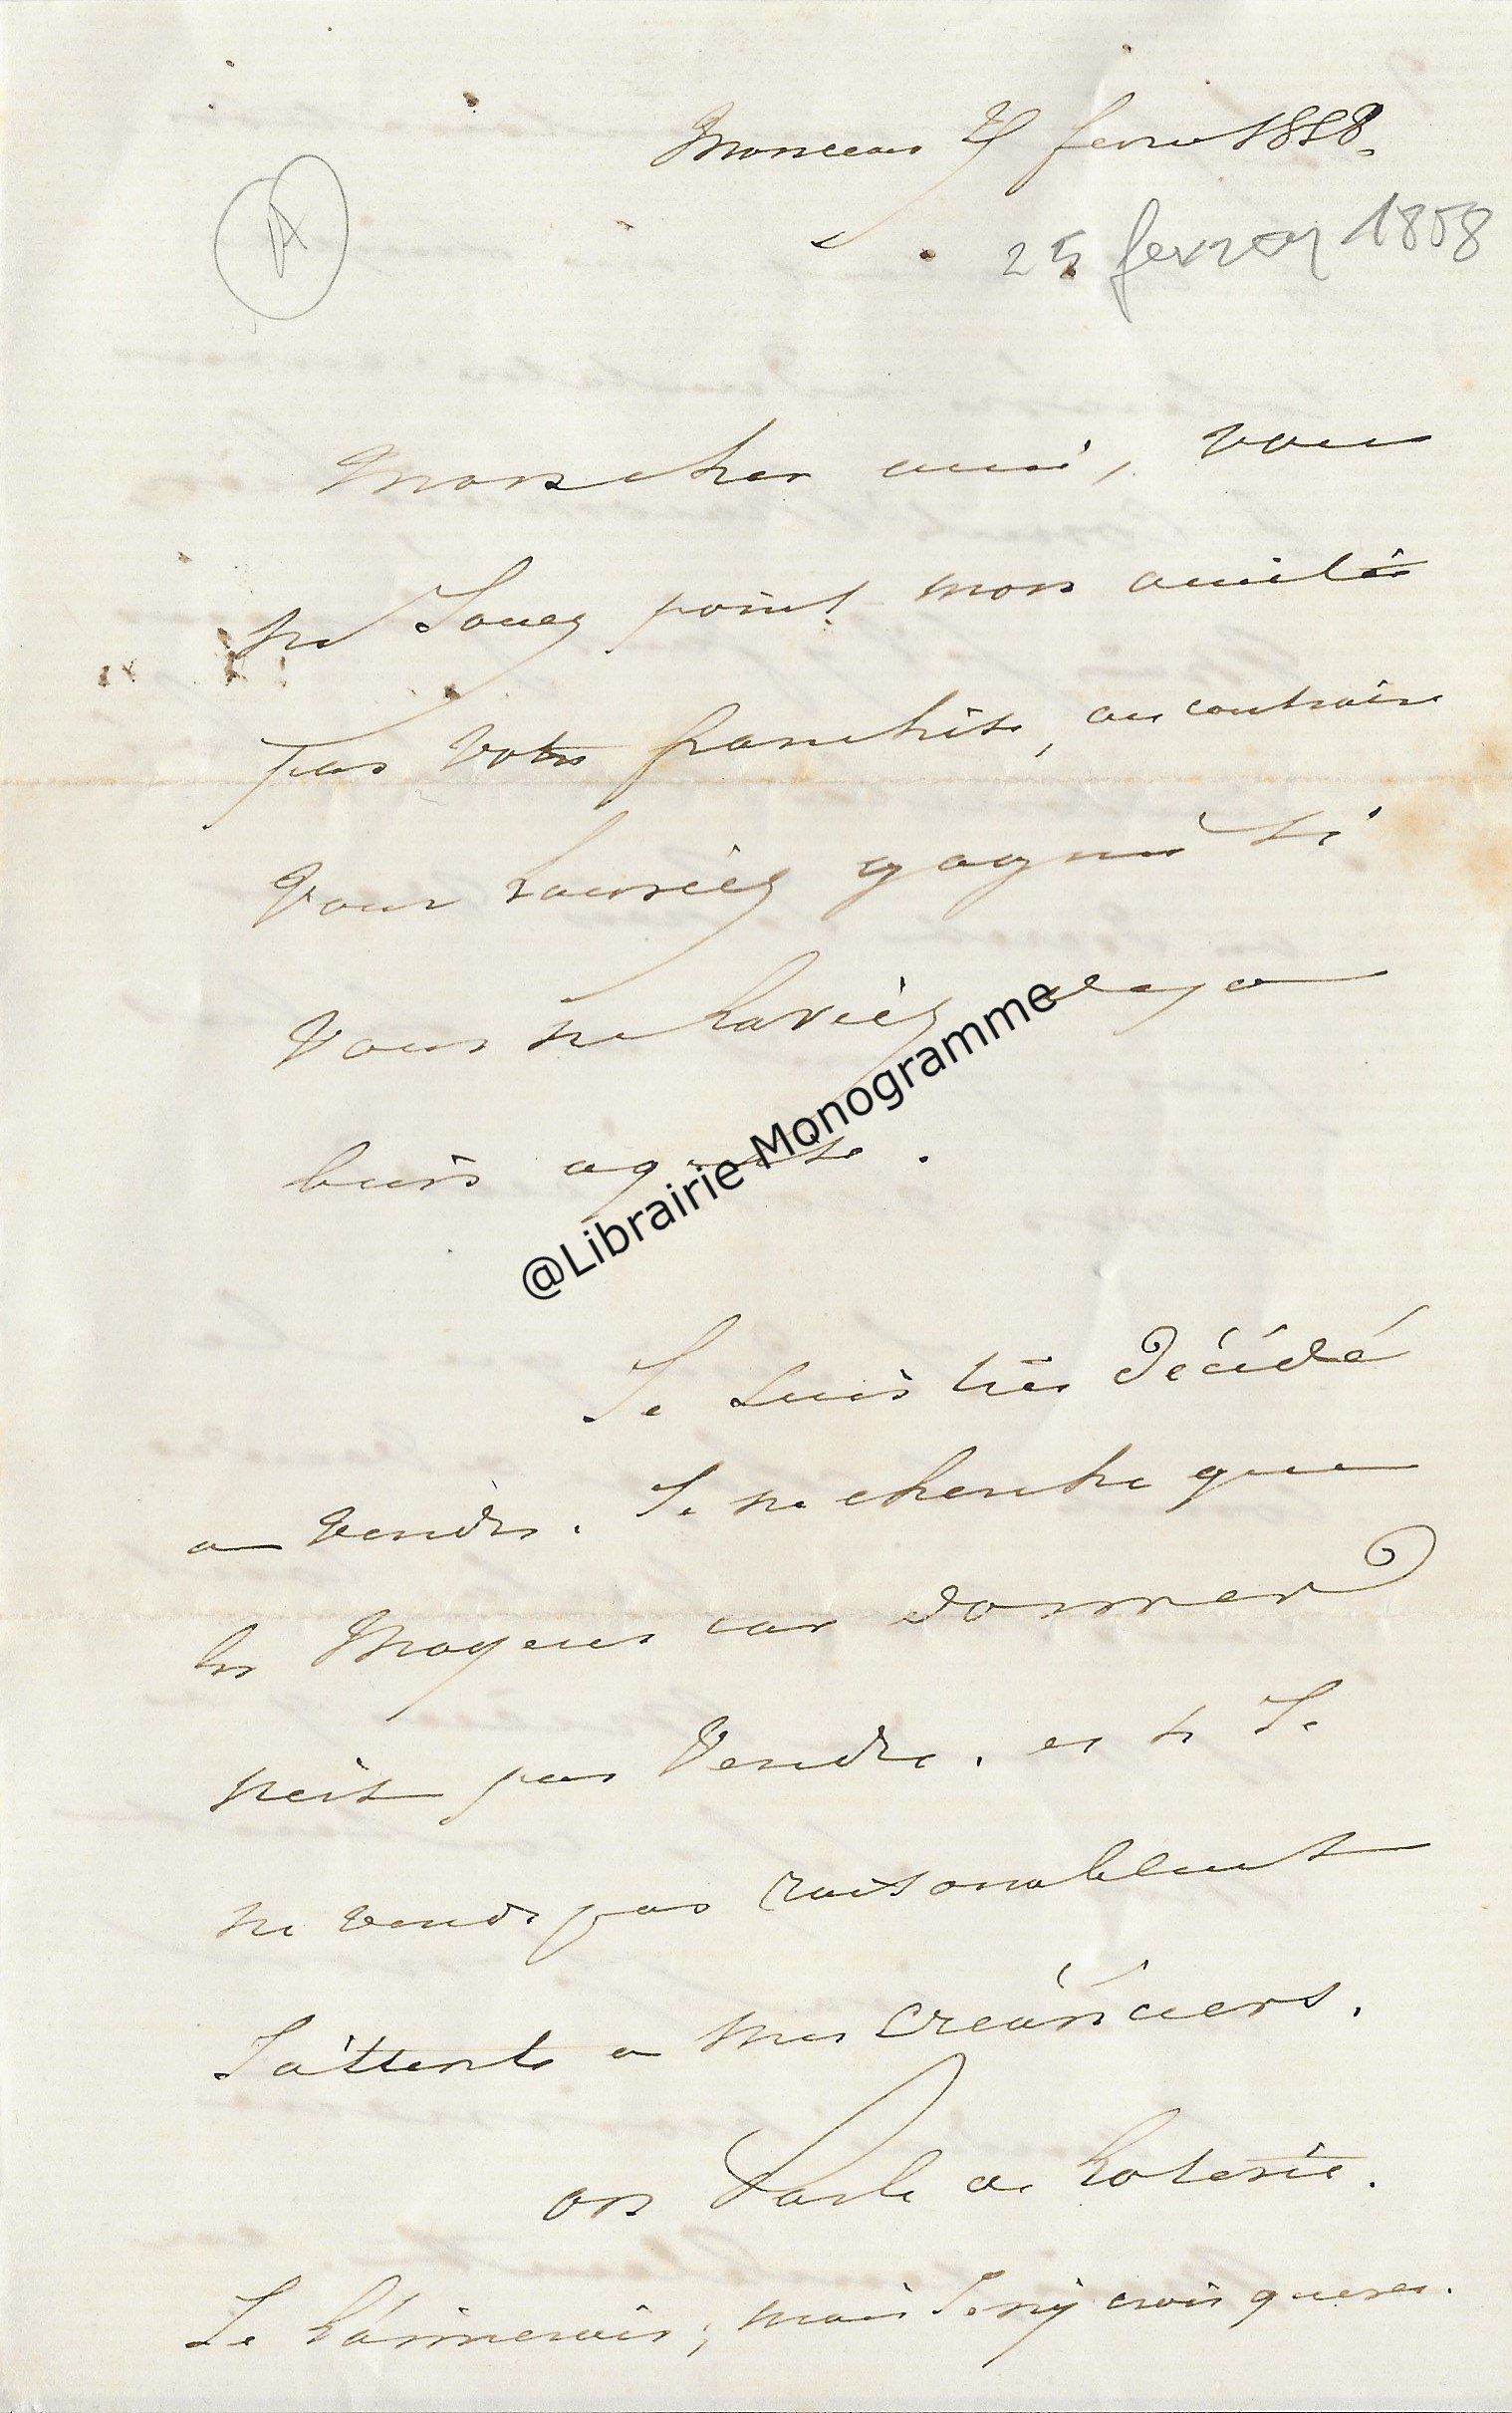 Monceau 25 fevrier 1858.
25 fevrier 1858
A
Mon cher ami, vous
ne jouez point mon amitié
par votre franchise, au contraire
vous lauriez gagnée si
vous ne laviez deja
bien
@Librairie Monogramme
Je suis très décidé
a vendre. Je ne cherche que
les moyens car donner
nest pas vendre. et si Je
ne vends pas raisonablemt
J'attente a mes créanciers.
on parle de Loterie.
Je l'aimerais ; mais Je ny crois gueres.